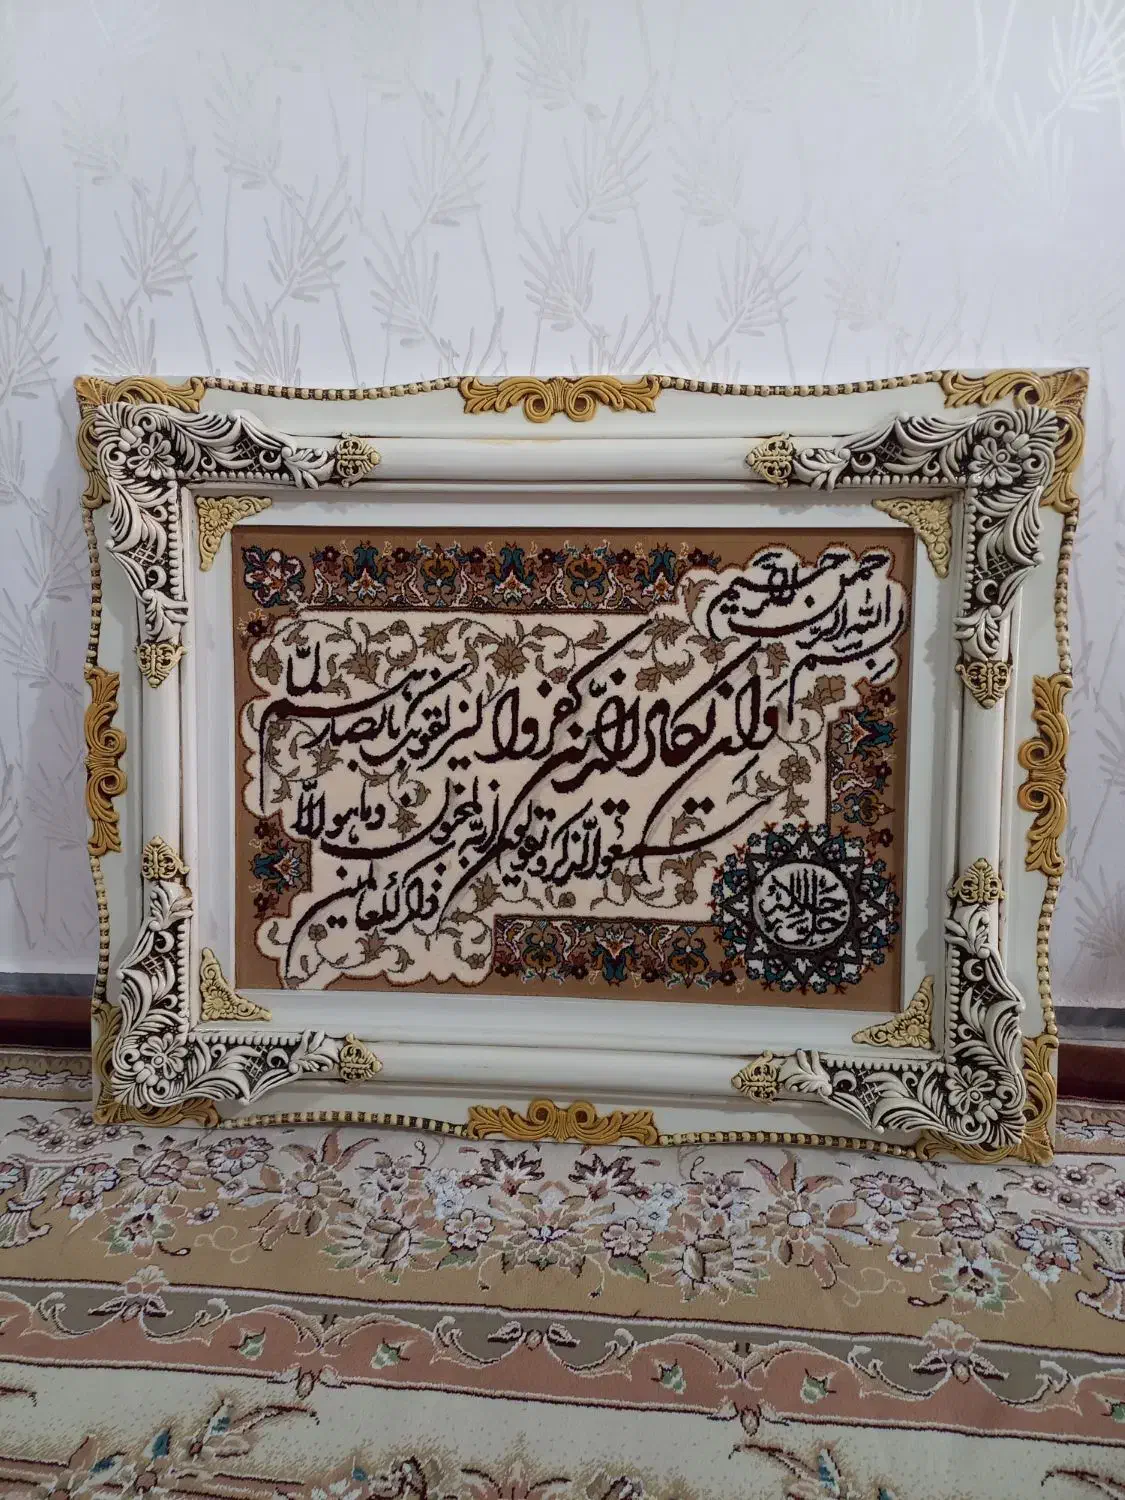 بسم الله الرحمن الرحیم
وان یکاد الذین کفروا لیزلقونک بابصارهم لمّا
سمعوا الذکر و یقولون انه لمجنون وما هو الّا
ذکر للعالمین